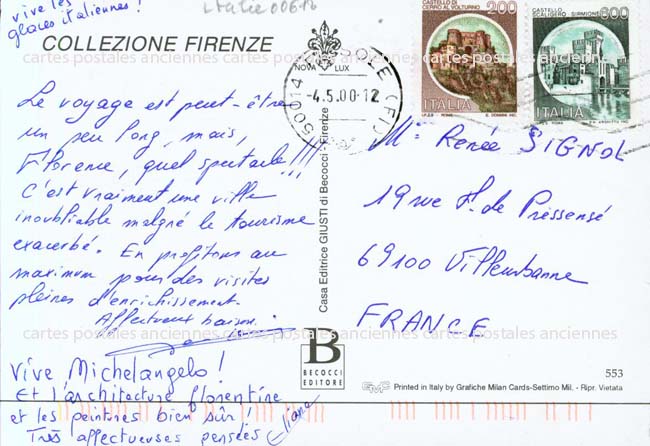 vive les
glaces italiennes !
Italie 00618
COLLEZIONE FIRENZE
Le voyage est peut-être
un peu long, mais,
Florence, quel spectacle !!!
C'est vraiment une ville
inoubliable malgré le tourisme
exacerbé. En profitons au
maximum pour des visites
pleines d'enrichissement.
Affectueux baisers.
Vive Michelangelo !
Et l'architecture florentine
et les peintures bien sûr !
Très affectueuses pensées
Eliane
NOVA LUX
50014 FIESOLE (FI)
-4.5.00-12
Casa Editrice GIUSTI di Becocci - Firenze
B
BECOCCI
EDITORE
CASTELLO DI
CERRO AL VOLTURNO
200
ITALIA
I.P.Z.S. ROMA
CASTELLO
SCALIGERO SIRMIONE
600
ITALIA
I.P.Z.S. ROMA
Me Renée SIGNOL
19 rue F. de Pressensé
69100 Villeurbanne
FRANCE
553
GMC Printed in Italy by Grafiche Milan Cards-Settimo Mil. - Ripr. Vietata
cartes postales anciennes cartes postales anciennes cartes postales anciennes
cartes postales anciennes cartes postales anciennes cartes postales anciennes